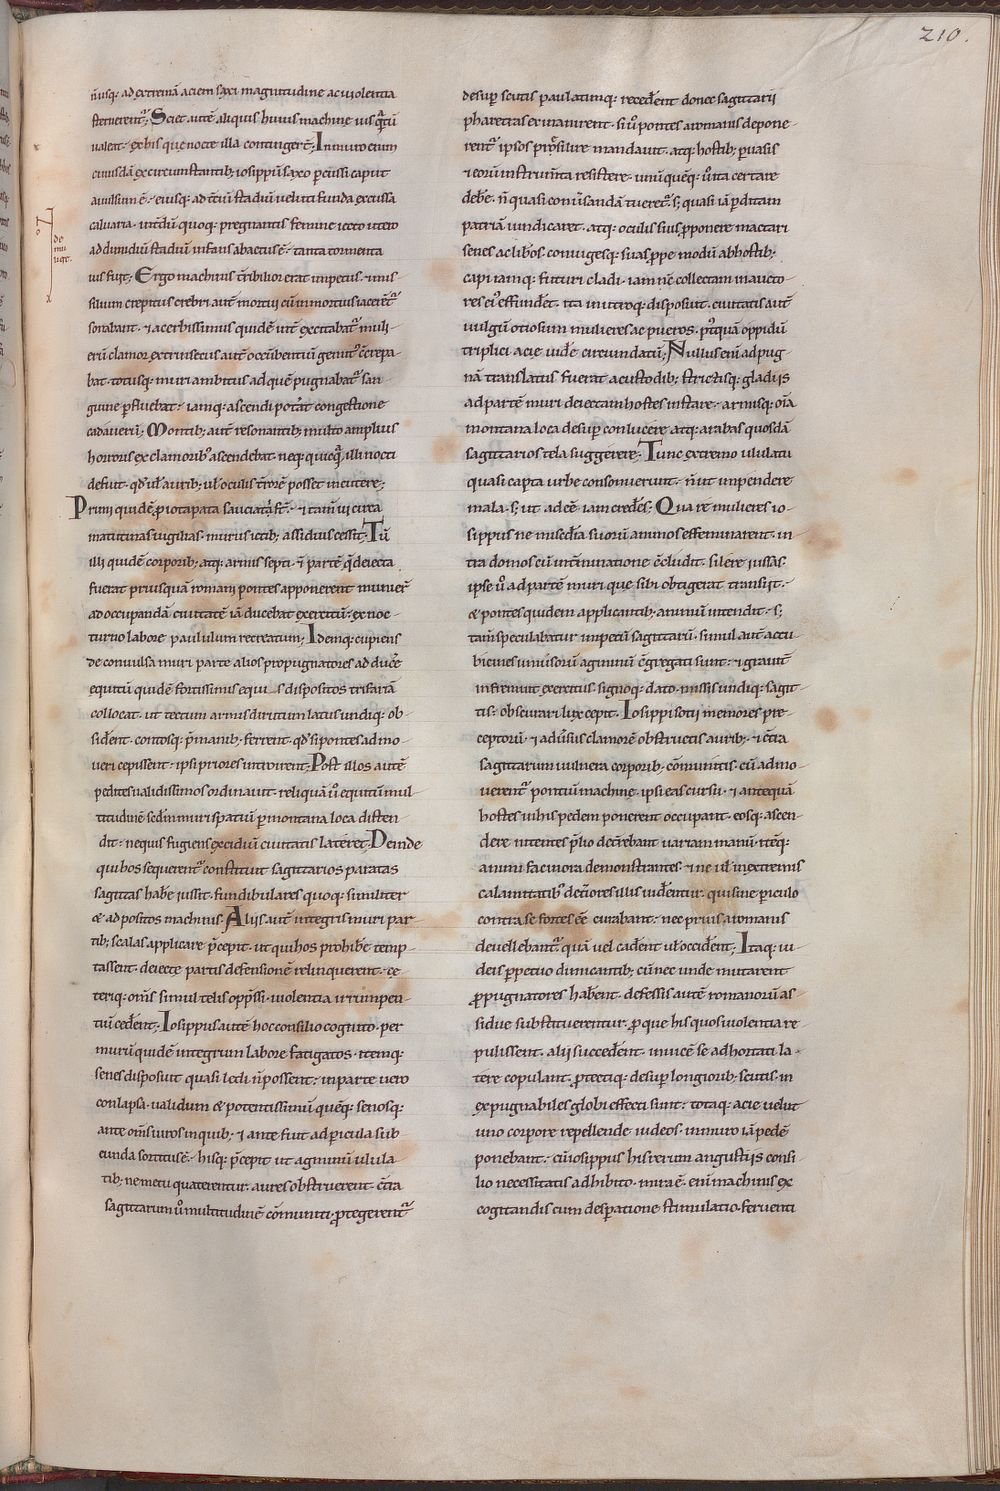 210.
nusq; ad extremā aciem saxi magnitudine ac violentia
sternerent̄; Sciet autē aliquis huius machine uis q̄ntū
ualeat· ex his quę nocte illa contingeret̄; In muro enim
cuiusdā ex circumstantib; iosippū saxo percussi caput
auulsum ē· eiusq; ad tc̄iū stadiū ueluti funda excussa
caluaria· int̄diu quoq; pregnantis femine icto utero
ad dimidiū stadiū infans abactus ē· tanta tormenta
uis fuit; Ergo machinis t̄ribilior erat impetus· & mis
silium crepitus crebri aut̄ mortui cū in mortuis iacerēt̄
sonabant· & acerbissimus quidē int̄ excitabat̄ muli-
erū clamor extrinsecus aut̄ occūbentiū gemit' c̄crepa-
bat· totusq; muri ambitus ad quē pugnabat̄ san-
guine p̄fluebat· iamq; ascendi pot̄at congestione
cadauerū; Montib; aut̄ resonantib; multo amplius
horroris ex clamorib' ascendebat· neq; quicq̄ illi nocti
defuit· qd̄ ul' aurib; ul' oculis t̄rorē posset incutere;
Primi quidē p̄ iotapata sauciati s̄t· & tam̄ ui circa
matutinas uigilias· murus ictib; assiduis cessit; Tū
illi quidē corporib; atq; armis septi· ī partē q̄ deiecta
fuerat priusquā romani pontes apponerent munier̄
ad occupandā ciuitatē iā ducebat exercitū· ex noc-
turno labore paululum recreatum; Idemq; cupiens
de conuulsa muri parte alios propugnatores adducē
equitū quidē fortissimis equi s dispositos trifariā
collocat· ut tectum armis dirutum latus undiq; ob-
sident· contosq; p̄ manib; ferrent· qd̄ si pontes admo-
ueri cepissent· ipsi priores introirent; Post illos autē
pedites ualidissimos ordinauit· reliquā ū equitum mul-
titudinē sedm̄ muri spatiū p̄ montana loca disten-
dit· ne quis fugiens excidiū ciuitatis lateret; Deinde
qui hos sequerent̄ constituit sagittarios paratas
sagittas habe iussit· fundibulares quoq; similiter
& ad positos machinis· Aliis aut̄ integris muri par-
tib; scalas applicare p̄cepit· ut qui hos prohibē temp-
tassent· deiecte partis defensionē relinquerent· ce-
teriq; om̄s simul telis opp̄ssi· uiolentia irrumpen-
tiū cedent; Iosippus autē hoc consilio cognito· per
murū quidē integrum labore fatigatos· itemq;
senes disposuit quasi ledi n̄ possent· in parte uero
conlapsa· ualidum & potentissimū quēq; senosq;
ante om̄s uiros in quib; & ante fuit ad pericula sub
eunda sortitus ē· hisq; p̄cepit ut agminū ulula
tib; ne metu quaterentur· aures obstruerent· c̄tra
sagittarum ū multitudinē cōmuniti· protegerent̄
N
de
mu
iuqr.
desup̄ scutis paulatimq; recedent donec sagittarii
pharetras exinanirent· si ū pontes a romanis depone-
rent̄ ipsos p̄silire mandauit· atq; hostib; p̄uasis
& eorū instrum̄ta resistere· unūquēq; ū ita certare
debe· n̄ quasi com̄unsandā tueret̄ s; quasi iā p̄ditam
patriā uindicaret· atq; oculis suis p̄ponere mactari
senes ac libos· coniugesq; suas p̄pe modū ab hostib;
capi iamq; futuri cladi· iam n̄c collectam in aucto-
res ei' effundet· ita in utroq; disposuit· ciuitatis autē
uulgū otiosum mulieres ac pueros· p̄tquā oppidū
triplici acie uidē circundatū; Nullus enī ad pug-
nā translatus fuerat a custodib; strictisq; gladiis
ad partē muri deiectam hostes instare· armisq; oīa
montana loca desup̄ conlucere· atq; arabas quosdā
sagittarios tela suggerere; Tunc extremo ululatu
quasi capta urbe consonuerunt· n̄ ut inpendere
mala· s; ut adcē iam credes; Qua re mulieres io-
sippus ne misedia suorū animos effeminarent· in-
tra domos cū int̄minatione c̄cludit· silere iussas·
ipse ū ad partē muri que sibi obtigerat transiit·-
& pontes quidem applicantib; animū intendit· s;
tam̄ speculabatur impetū sagittarū· simul aut̄ accu-
bicines uniuisorū agminū c̄gregati sunt· & grauit̄
infremuit exercitus· signoq; dato· missis undiq; sagit-
tis· obscurari lux cepit· Iosippi sotii memores pre-
ceptorū· & aduersus clamorē obstructis aurib; & c̄tra
sagittarum uulnera corporib; cōmunitis· cū admo-
uerent̄ pontiū machine· ipsi eas cursu· & antequā
hostes in his pedem ponerent occupant· eosq; ascen-
dere nitentes p̄lio detrebant uariam manū· itēq;
animi facinora demonstrantes· & ne ul' in extremis
calamitatib' det̄iores illis uidentur· qui sine periculo
contra se fortes eē curabant· nec prius a romanis
deuellebant̄· quā uel cadent ul' occidērt; Itaq; iu-
deis p̄petuo dimicantib; cū nec unde mutarent
p̄pugnatores habent· defessis autē romanorū as-
sidue substituerentur· p̄que his quos uiolentia re-
pulissent· alii succedent· inuicē se adhortati la-
tere copulant· protectiq; desup̄ longiorib; scutis· in
expugnabiles globi effecti sunt· totaq; acie uelut
uno corpore repellende iudeos· in muro iā pedē
ponebant· cū iosippus his rerum angustiis consi-
lio necessitatis adhibito· mira ē· enī machinis ex
cogitandis cum desperatione stimulatio· feruenti